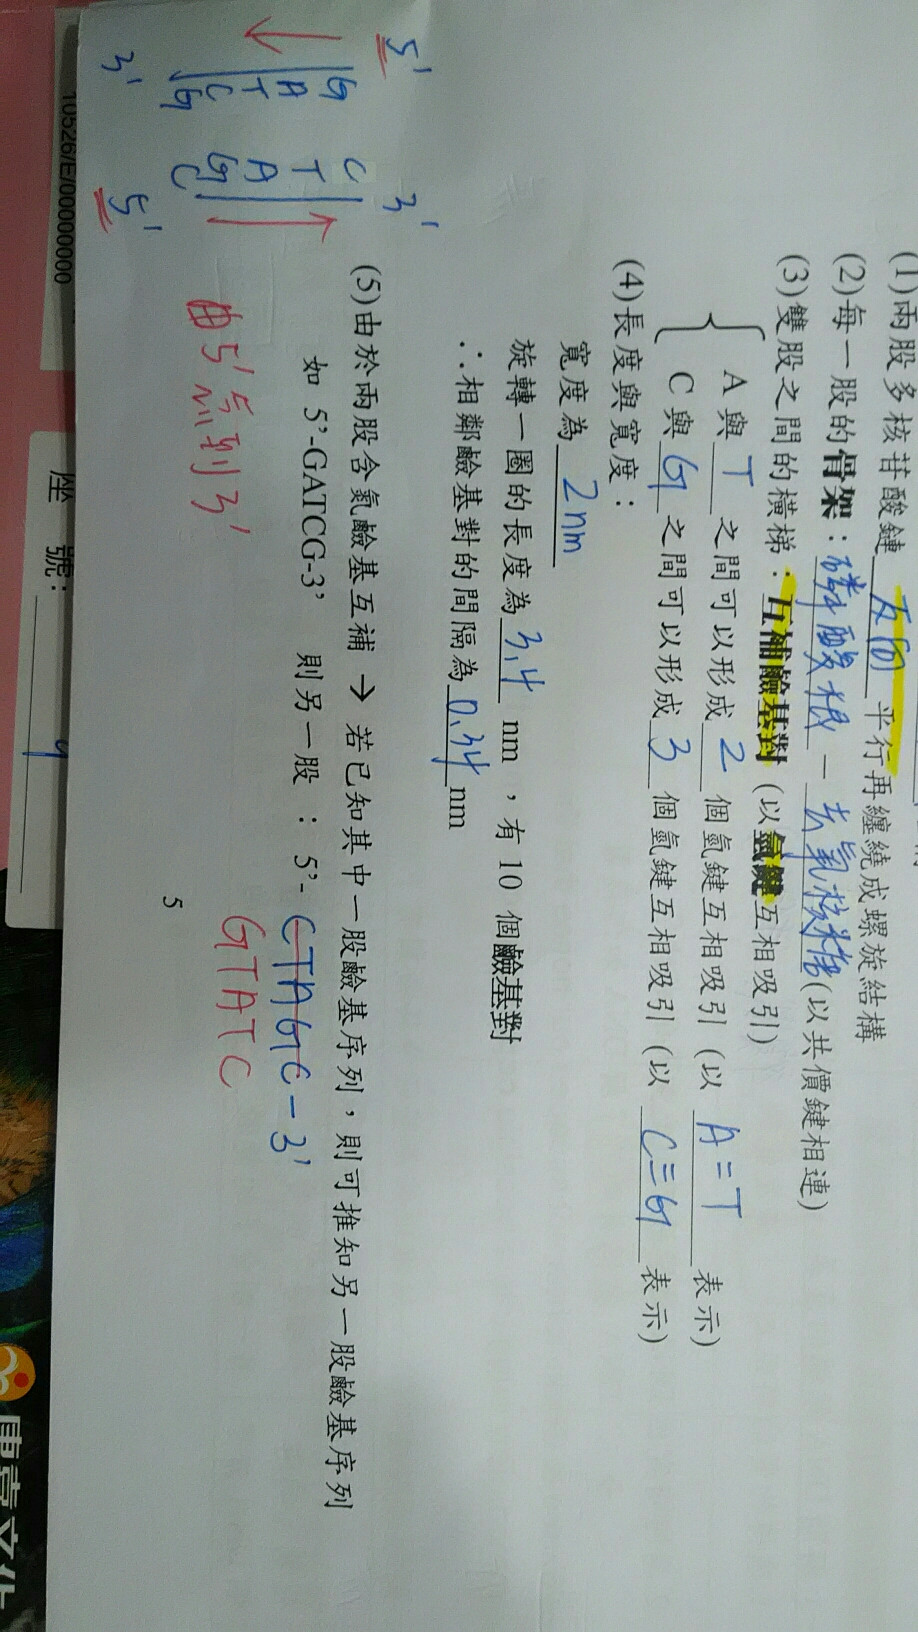 (1)兩股多核苷酸鏈 反向 平行再纏繞成螺旋結構
(2)每一股的骨架：磷酸根－去氧核糖(以共價鍵相連)
(3)雙股之間的橫梯：互補鹼基對 (以氫鍵互相吸引)
A 與 T 之間可以形成 2 個氫鍵互相吸引 (以 A=T 表示)
C 與 G 之間可以形成 3 個氫鍵互相吸引 (以 C≡G 表示)
(4)長度與寬度：
寬度為 2nm
旋轉一圈的長度為 3.4 nm ，有 10 個鹼基對
∴相鄰鹼基對的間隔為 0.34 nm
(5)由於兩股含氮鹼基互補 → 若已知其中一股鹼基序列，則可推知另一股鹼基序列
如 5’-GATCG-3’ 則另一股 ：5’- CTAGC-3'
GTATC
由5'端到3'
5' 3'
G C
A T
T A
C G
G C
3' 5'
5
10526/E/00000000
座 號：
9
康喜文化